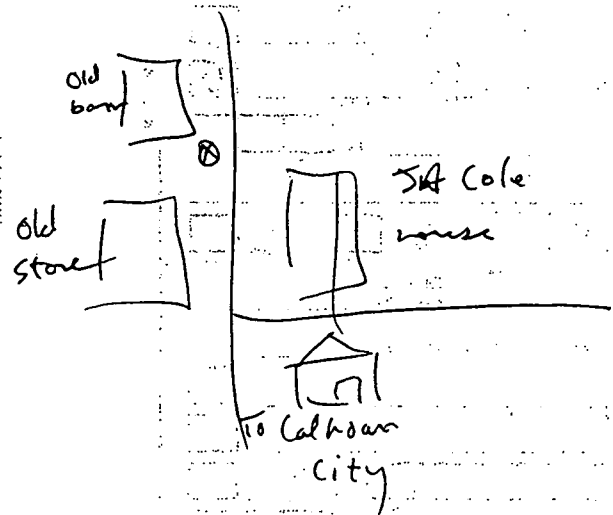 Old
barn
Old
store
JA Cole
house
To Calhoun
City